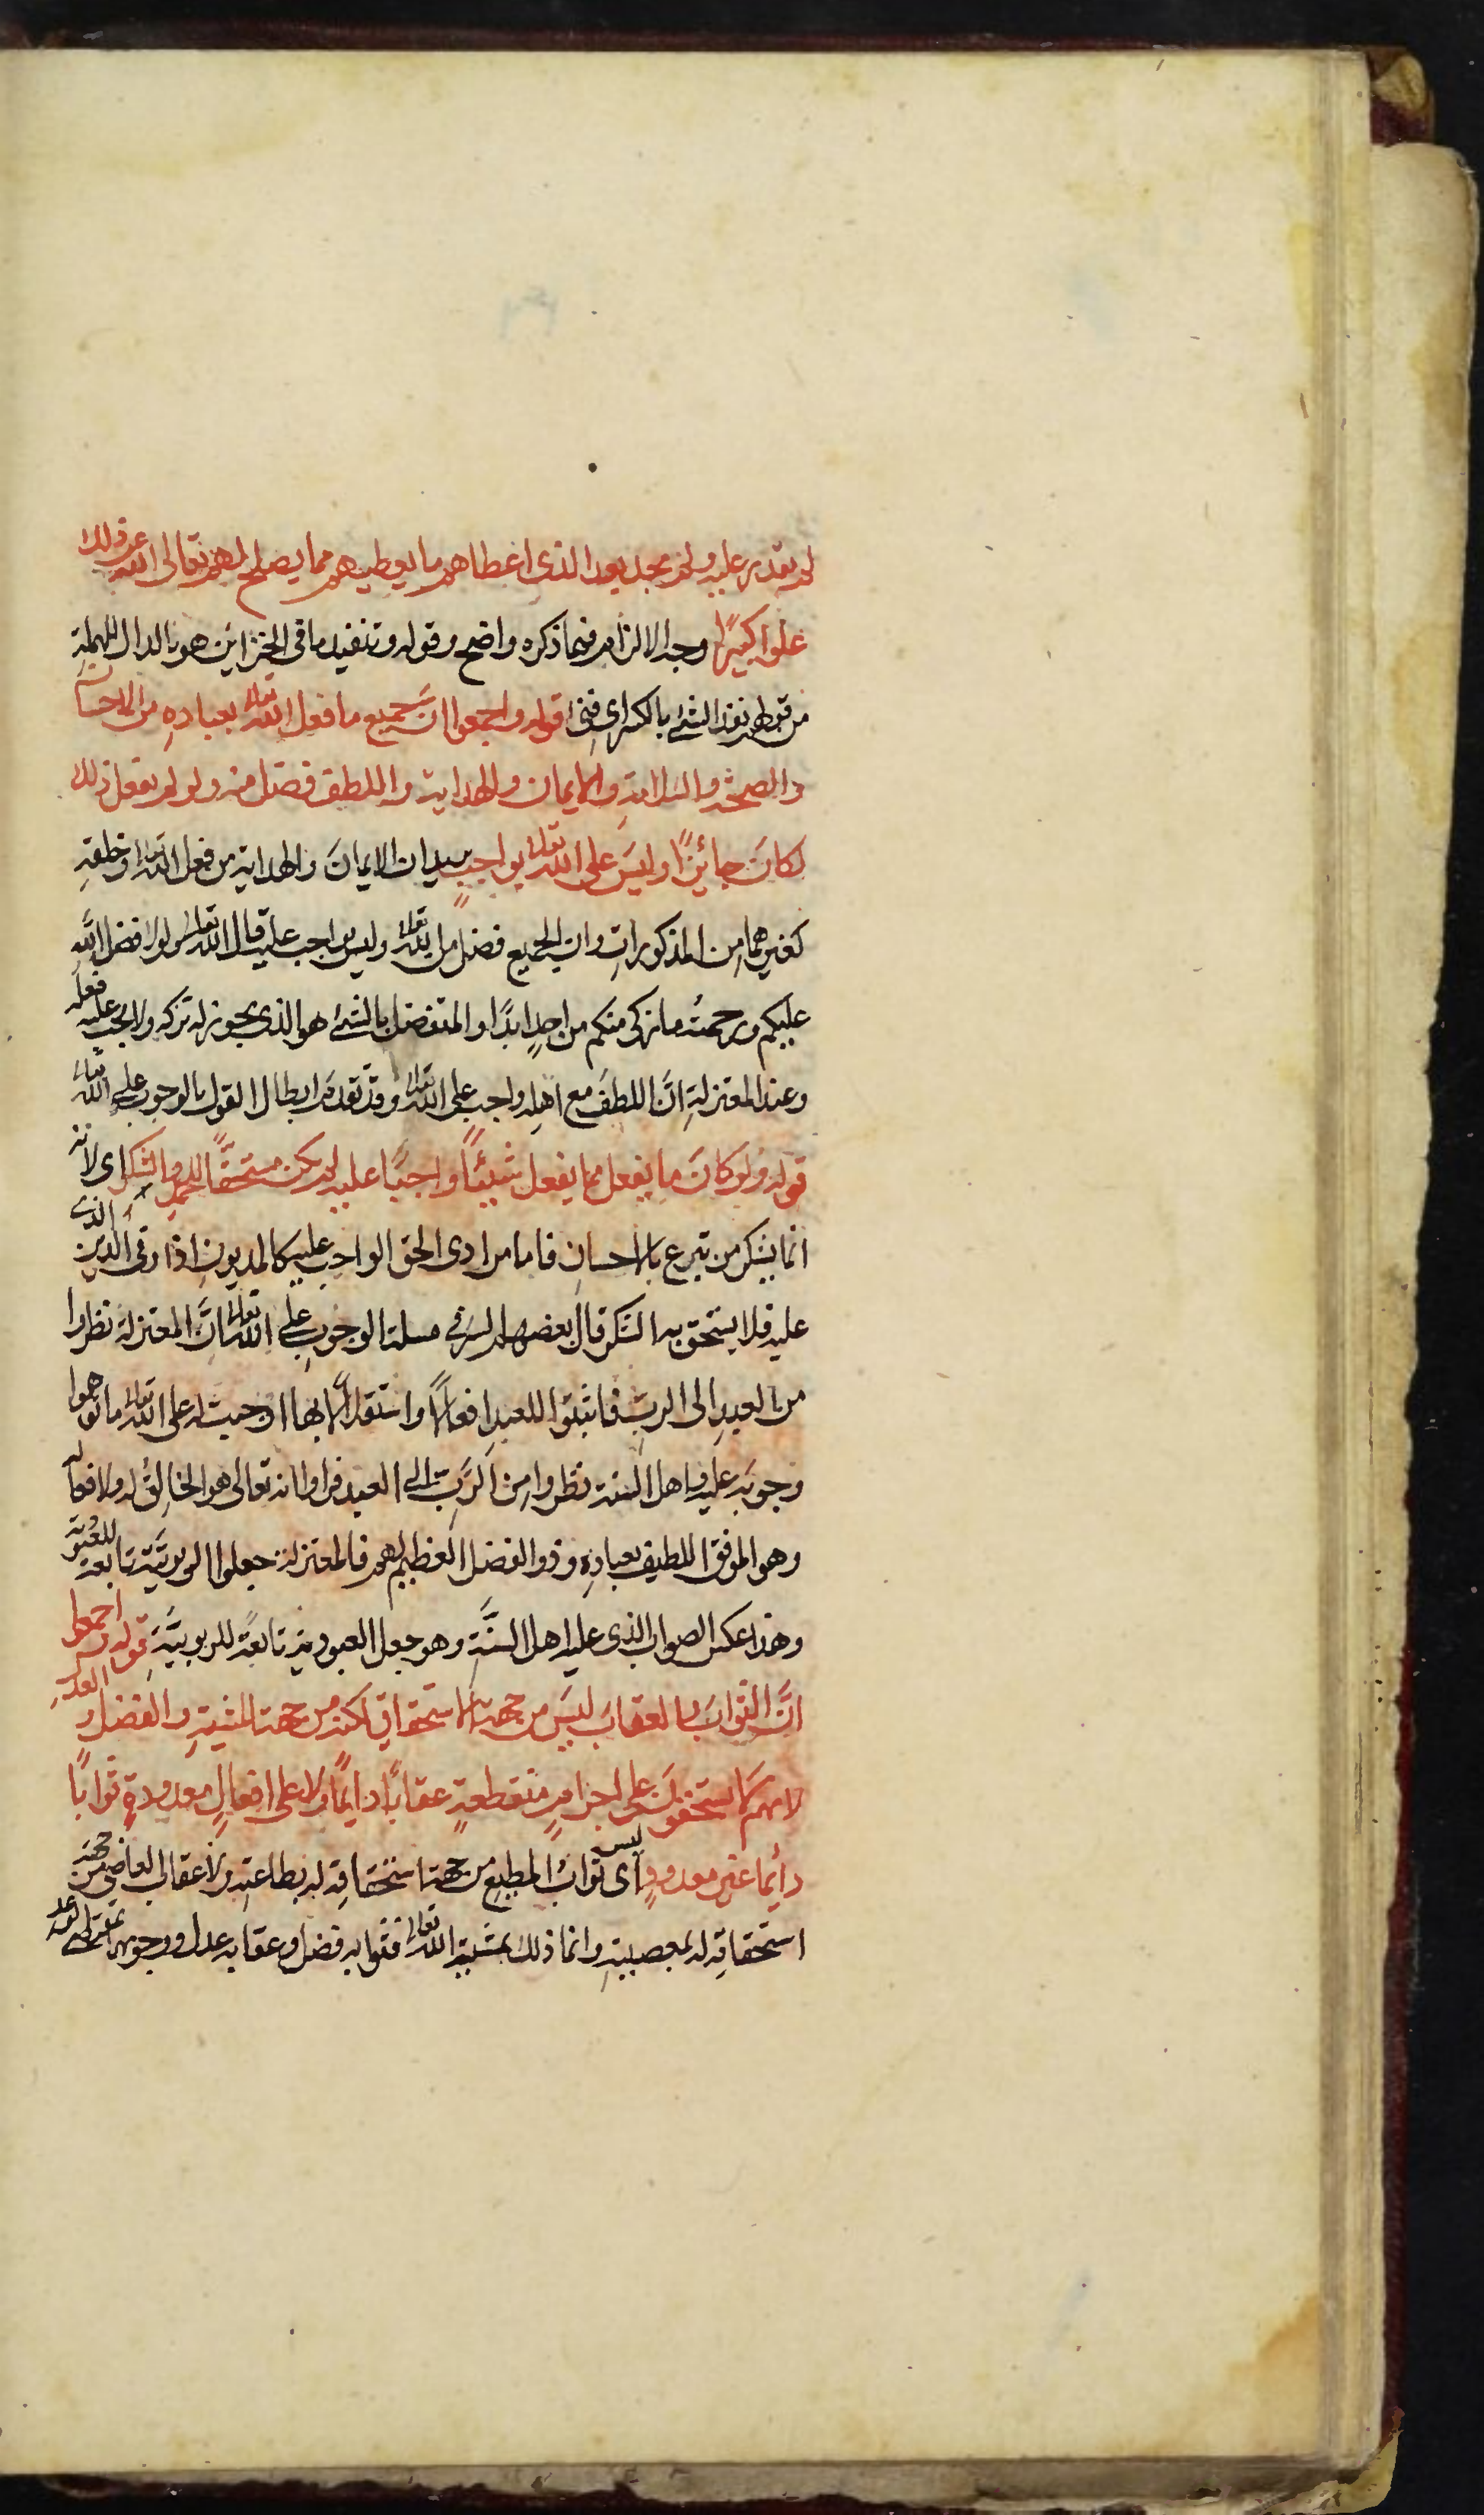 لم يقدر عليه ولم يجد بعد الذي اعطاهم ما يعطيهم مما يصلح لهم تعالى الله عن ذلك
علوا كبيرًا وجه الالزام فيما ذكره واضح وقوله وتنفيد ما في الخزاين هو بالدال المهملة
من قولهم نفد الشئ بالكسر اي فنى قوله واجمعوا انَّ جميع ما فعل الله تعالى بعبادهِ من الاحسان
والصحة والسلامةِ والايمان والهداية واللطف فضل منه ولو لم يفعل ذلك
لكانَ جائزًا وليسَ على الله تعالى بواجبٍ يريد ان الايمانَ والهداية من فعل الله تعالى وخلقهِ
كغيرهما من المذكوراتِ وان الجميع فضل من الله تعالى وليس بواجب عليه قال الله تعالى ولولا فضل اللهِ
عليكم ورحمتُه ما زكى منكم من احدٍ ابدًا والمتفضل بالشئ هو الذي يجوز له تركه ولا يجب عليه فعله
وعند المعتزلةِ انَّ اللطفَ مع اهله واجب على الله تعالى وقد تقدم ابطال القول بالوجوب على الله تعالى
قوله ولو كانَ ما يفعل مما يفعل شيئًا واجبًا عليه لم يكن مستحقًّا للحمدِ والشكر اي لانه
انما يشكر من تبرع بالاحسانِ فاما من ادى الحق الواجب عليه كالمديونِ اذا وفى الدين الذي
عليه فلا يستحق به الشكر قال بعضهم السر في مسلة الوجوبِ على الله تعالى انَّ المعتزلة نظروا
من العبدِ الى الربِ فاثبتوا للعبدِ افعالًا واستقلالًا بها اوجبت له على الله تعالى ما توهموا
وجوبَه عليه واهل السنة نظروا من الرَّبِ الى العبد فراوا انه تعالى هو الخالِقُ له ولافعاله
وهو الموفق اللطيف بعبادهِ وذو الفضل العظيم لهم فالمعتزلة جعلوا الربوبيَّة تابعة للعبودية
وهذا عكس الصواب الذي عليه اهل السنَّةِ وهو جعل العبودية تابعةً للربوبيَّةِ قوله واجمعوا
انَّ الثوابَ والعقابَ ليسَ من جهة الاستحقاقِ لكنه من جهة المشيةِ والفضل والعدلِ
لانهم لا يستحقونَ على اجرامٍ منقطعةٍ عقابًا دايمًا ولا على افعالٍ معدودةٍ ثوابًا
دائما غير معدودٍ اى ليس ثوابُ المطيعِ من جهة استحقاقِه له بطاعتهِ ولا عقاب العاصي من جهة
استحقاقِه له بمعصيتهِ وانما ذلك بمشيةِ الله تعالى فثوابه فضل وعقابه عدل ووجوبهما